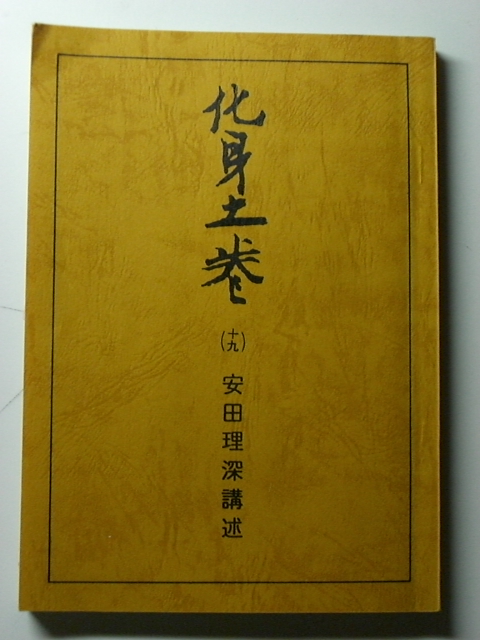 化身土巻
(十九)
安田理深講述